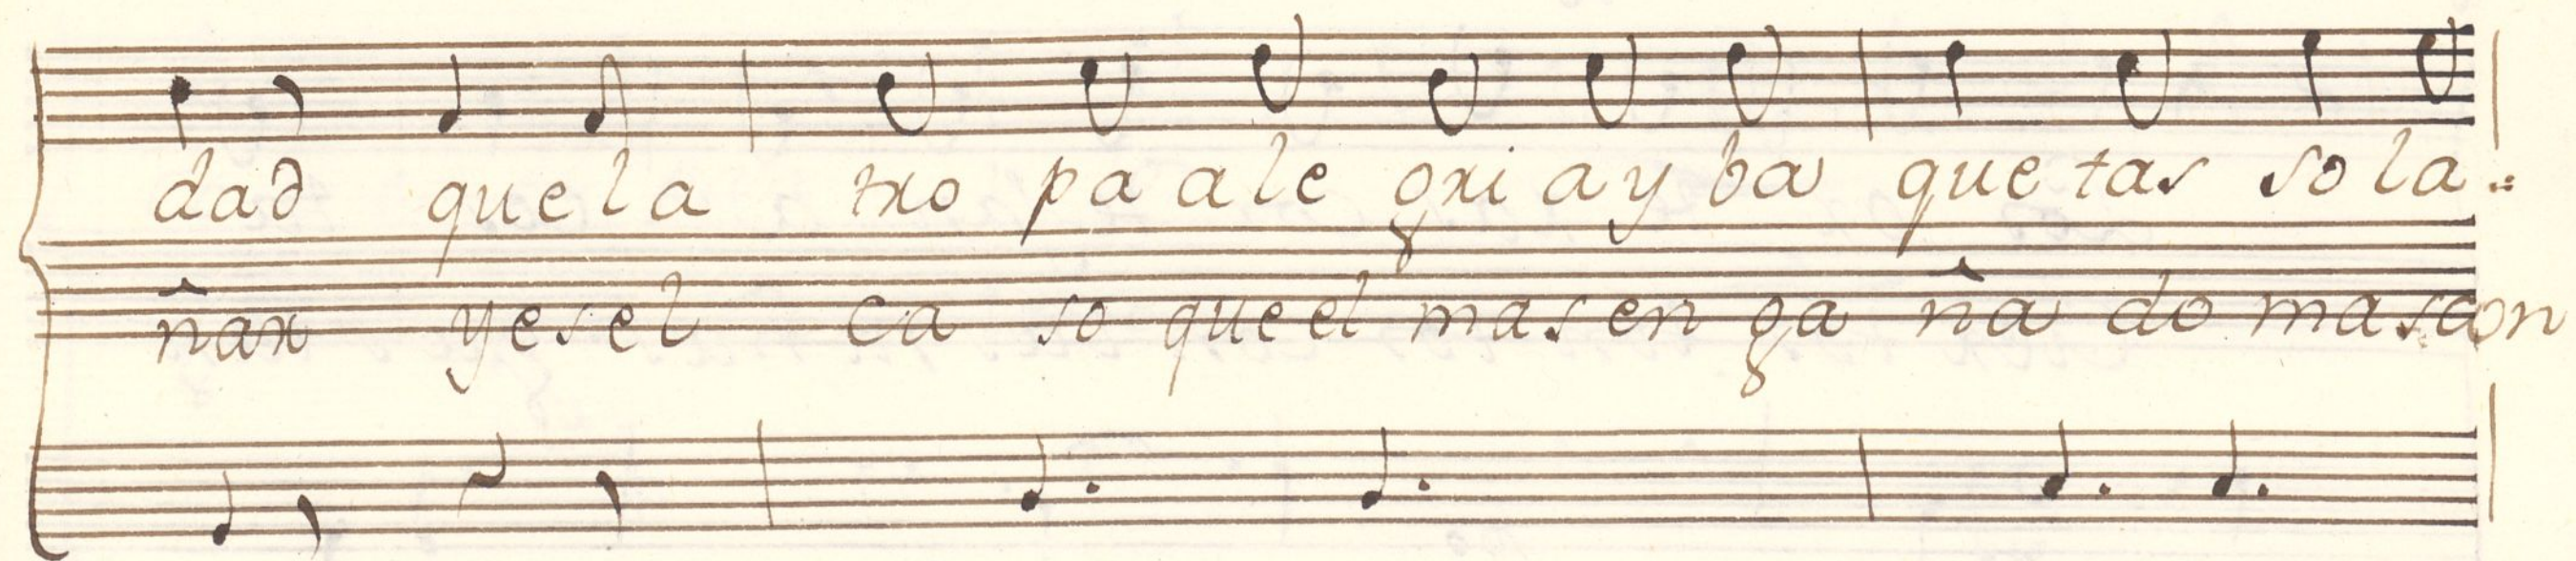 dad que la tro pa a le gri a y ba que tas so la..
ñar y es el ca so que el mas en ga ña do mas con